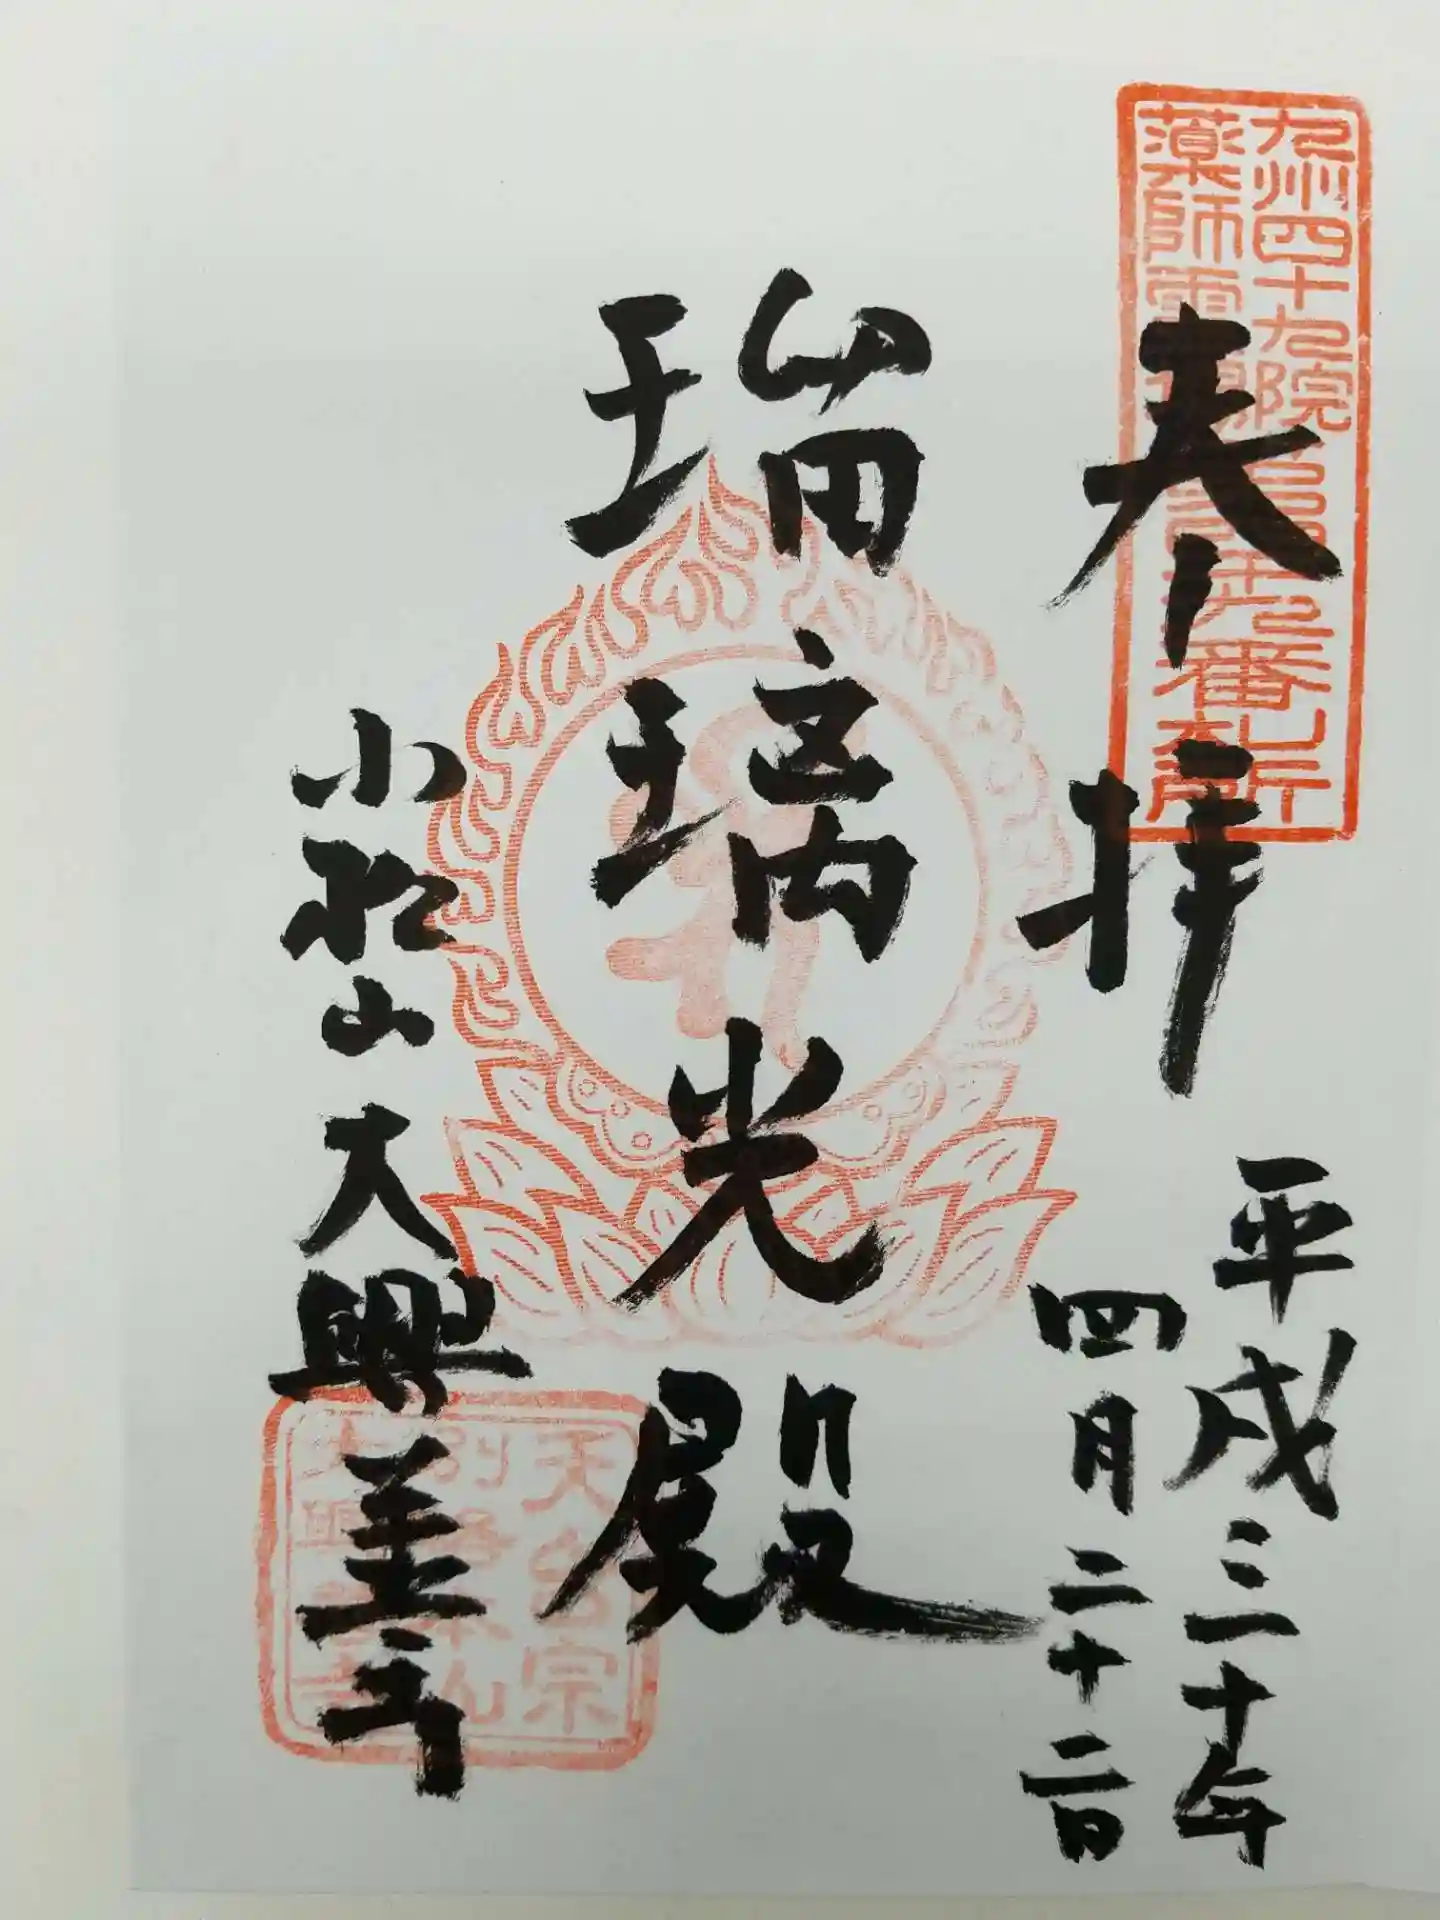 九州四十九院
薬師霊場
奉拝
平成三十年
四月二十二日
瑠璃光殿
小松山大興善寺
天台宗
別格本山
大興善寺